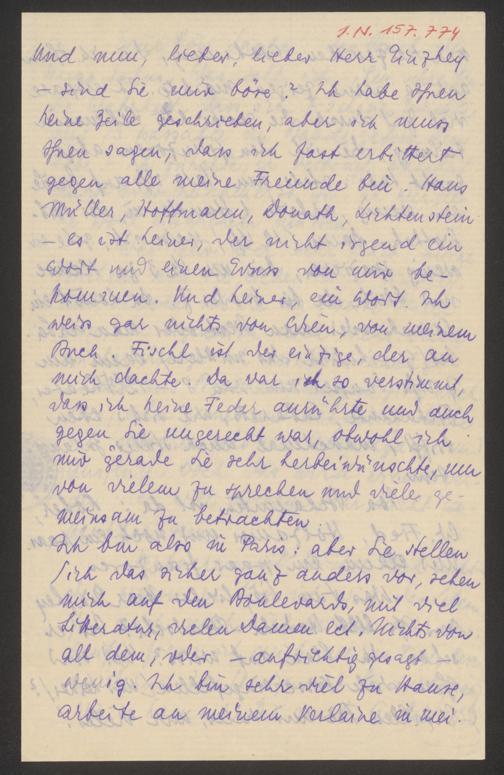 I.N. 157.774
Und nun, lieber, lieber Herr Ginzkey
– sind Sie mir böse? Ich habe Ihnen
keine Zeile geschrieben, aber ich muss
Ihnen sagen, dass ich fast erbittert
gegen alle meine Freunde bin. Hans
Müller, Hoffmann, Donath, Lichtenstein
– es ist keiner, der nicht irgend ein
Wort und einen Gruss von mir be-
kommen. Und keiner ein Wort. Ich
weiss gar nichts von Wien, von meinem
Buch. Fischl ist der einzige, der an
mich dachte. Da war ich so verstimmt,
dass ich keine Feder anrührte und auch
gegen Sie ungerecht war, obwohl ich
mir gerade Sie sehr herbeiwünschte, um
von vielem zu sprechen und viele ge-
meinsam zu betrachten.
Ich bin also in Paris: aber Sie stellen
sich das sicher ganz anders vor, sehen
mich auf den Boulevards, mit viel
Litteratur, vielen Damen ect. Nichts von
all dem, oder – aufrichtig gesagt –
wenig. Ich bin sehr viel zu Hause,
arbeite an meinem Verlaine u. mei.